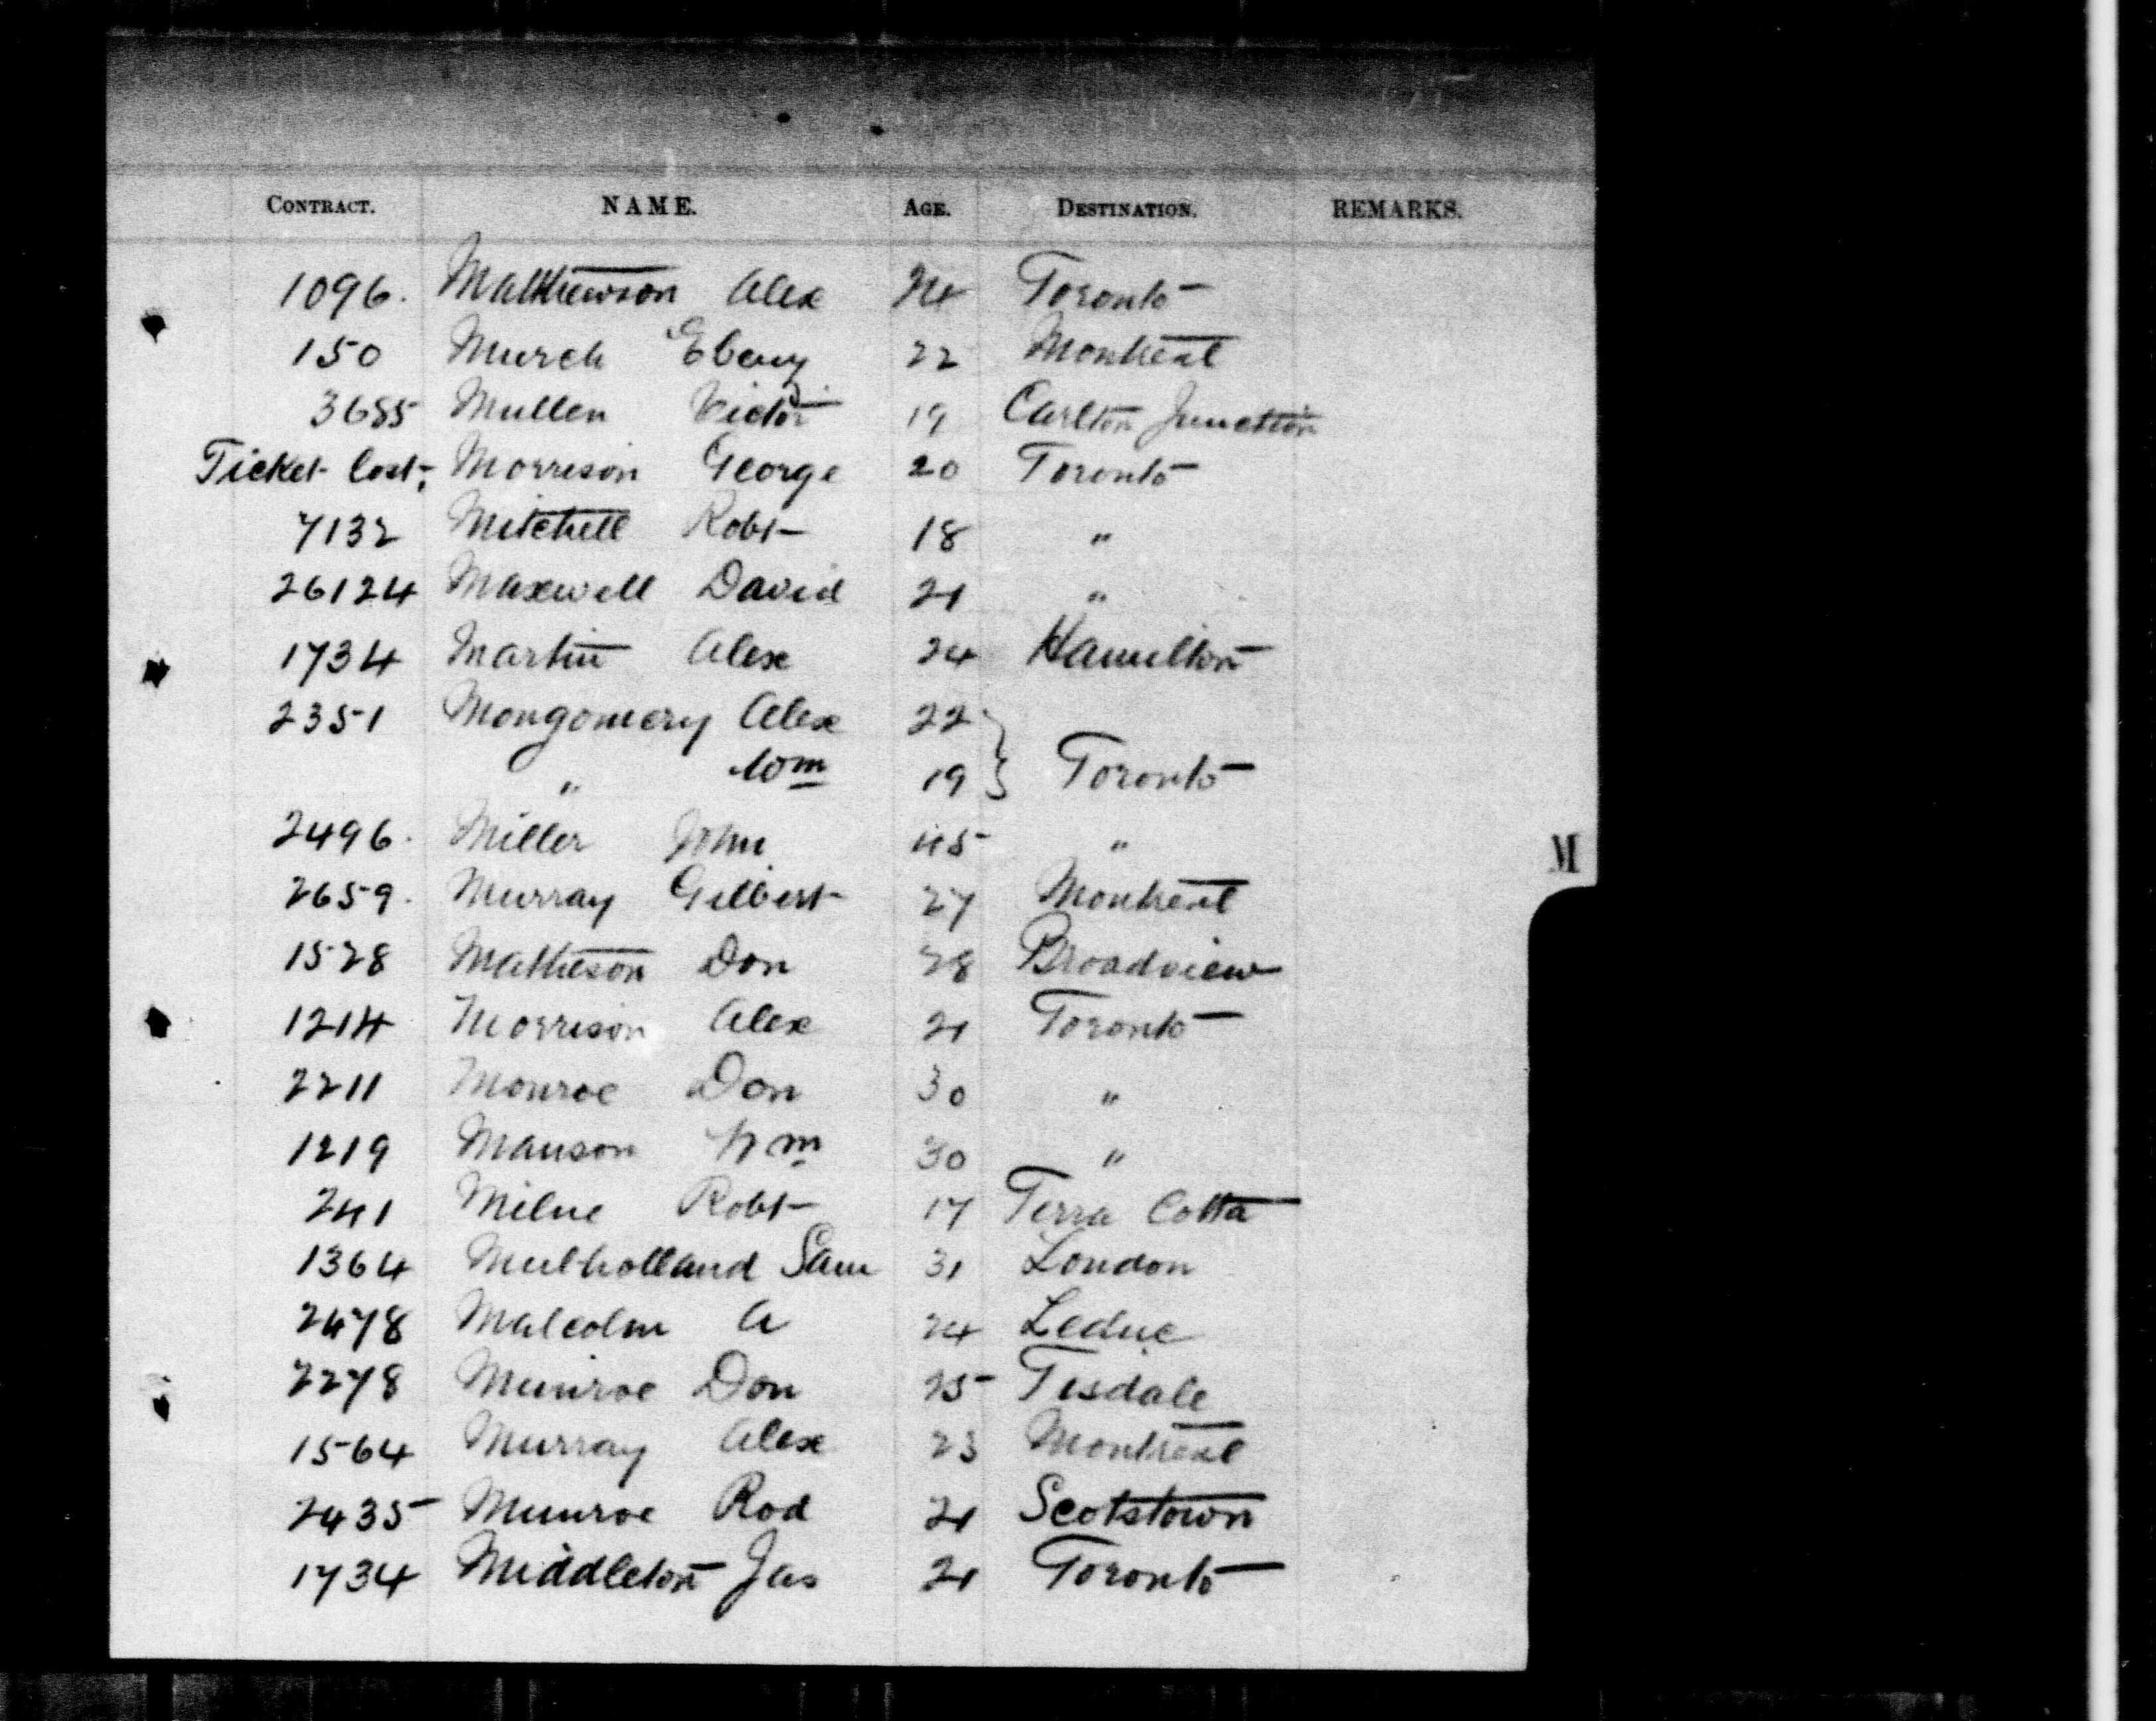 CONTRACT. NAME. AGE. DESTINATION. REMARKS.
1096. Matthewson Alex 24 Toronto
150 Murch 22 Montreal
3685 Mullen Victor 19 Carlton Junction
Ticket lost. Morrison George 20 Toronto
7132 Mitchell Robt 18 "
26124 Maxwell David 21 "
1734 Martin Alex 24 Hamilton
2351 Mongomery Alex 22
" Wm 19 } Toronto
2496. Miller John 45 "
2659. Murray Gilbert 27 Montreal
1528 Matheson Don 28 Broadview
1214 Morrison Alex 21 Toronto
2211 Monroe Don 30 "
1219 Manson Wm 30 "
241 Milne Robt 17 Terra Cotta
1364 Mulholland Sam 31 London
2478 Malcolm A 24 Leduc
2278 Munroe Don 25 Tisdale
1564 Murray Alex 23 Montreal
2435 Munroe Rod 21 Scotstown
1734 Middleton Jas 21 Toronto
M